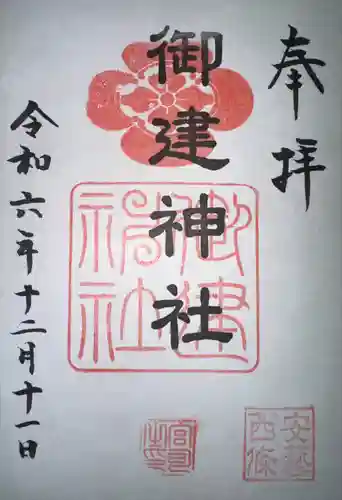 奉拝
御建神社
御建神社
令和六年十二月十一日
安芸西條
宮司之印